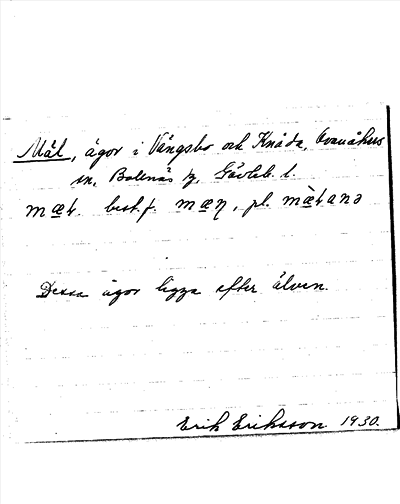 Mäl, ägor i Vängsbo och Knåda, Ovanåkers
sn, Bollnäs tg, Gävleb. l.
mæt. best. f. mæn, pl. mætanə
Dessa ägor ligga efter älven.
Erik Eriksson 1930.